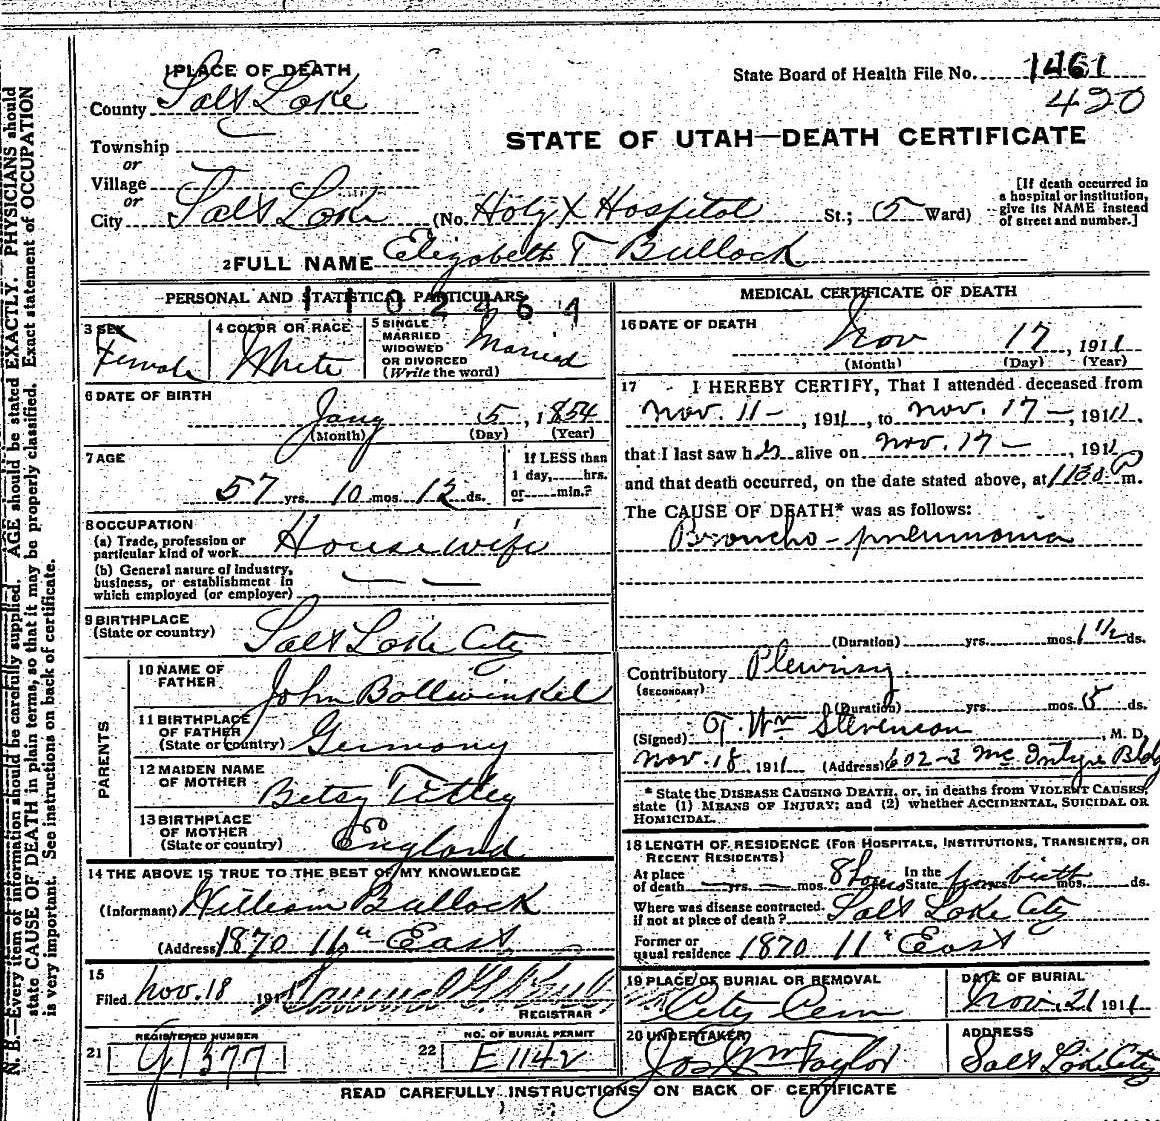 1 PLACE OF DEATH
State Board of Health File No. 1461
420
County Salt Lake
STATE OF UTAH—DEATH CERTIFICATE
Township
or
Village
or
City Salt Lake (No. Holy X Hospital St.; 5 Ward)
[If death occurred in
a hospital or institution,
give its NAME instead
of street and number.]
2 FULL NAME Elizabeth T Bullock
PERSONAL AND STATISTICAL PARTICULARS
1102464
3 SEX
Female
4 COLOR OR RACE
White
5 SINGLE
MARRIED
WIDOWED
OR DIVORCED
(Write the word)
Married
6 DATE OF BIRTH
Jany 5, 1854
(Month) (Day) (Year)
7 AGE
57 yrs. 10 mos. 12 ds.
If LESS than
1 day, hrs.
or min.?
8 OCCUPATION
(a) Trade, profession or
particular kind of work Housewife
(b) General nature of industry,
business, or establishment in
which employed (or employer) — —
9 BIRTHPLACE
(State or country) Salt Lake City
PARENTS
10 NAME OF
FATHER John Bollwinkel
11 BIRTHPLACE
OF FATHER
(State or country) Germany
12 MAIDEN NAME
OF MOTHER Betsy Titley
13 BIRTHPLACE
OF MOTHER
(State or country) England
14 THE ABOVE IS TRUE TO THE BEST OF MY KNOWLEDGE
(Informant) William Bullock
(Address) 1870 11th East
15
Filed Nov. 18 191
REGISTRAR
REGISTERED NUMBER
21 G1377
NO. OF BURIAL PERMIT
22 E1142
MEDICAL CERTIFICATE OF DEATH
16 DATE OF DEATH
Nov 17, 1911
(Month) (Day) (Year)
17 I HEREBY CERTIFY, That I attended deceased from
Nov. 11—, 1911, to Nov. 17—, 1911.
that I last saw h er alive on Nov. 17—, 1911
and that death occurred, on the date stated above, at 1130 A m.
The CAUSE OF DEATH* was as follows:
Broncho-pneumonia
(Duration) yrs. mos. 1 1/2 ds.
Contributory Pleurisy
(SECONDARY)
(Duration) yrs. mos. 5 ds.
(Signed) T. Wm Stevenson, M. D.
Nov. 18, 1911 (Address) 602-3 McIntyre Bldg
* State the DISEASE CAUSING DEATH, or, in deaths from VIOLENT CAUSES,
state (1) MEANS OF INJURY; and (2) whether ACCIDENTAL, SUICIDAL OR
HOMICIDAL.
18 LENGTH OF RESIDENCE (FOR HOSPITALS, INSTITUTIONS, TRANSIENTS, OR
RECENT RESIDENTS)
At place
of death — yrs. — mos. 8 hours In the
State from birth yrs. mos. ds.
Where was disease contracted.
if not at place of death? Salt Lake City
Former or
usual residence 1870 11th East
19 PLACE OF BURIAL OR REMOVAL
City Cem
DATE OF BURIAL
Nov. 21 1911
20 UNDERTAKER
Jos Wm Taylor
ADDRESS
Salt Lake City
READ CAREFULLY INSTRUCTIONS ON BACK OF CERTIFICATE
N. B.—Every item of information should be carefully supplied. AGE should be stated EXACTLY. PHYSICIANS should
state CAUSE OF DEATH in plain terms, so that it may be properly classified. Exact statement of OCCUPATION
is very important. See instructions on back of certificate.